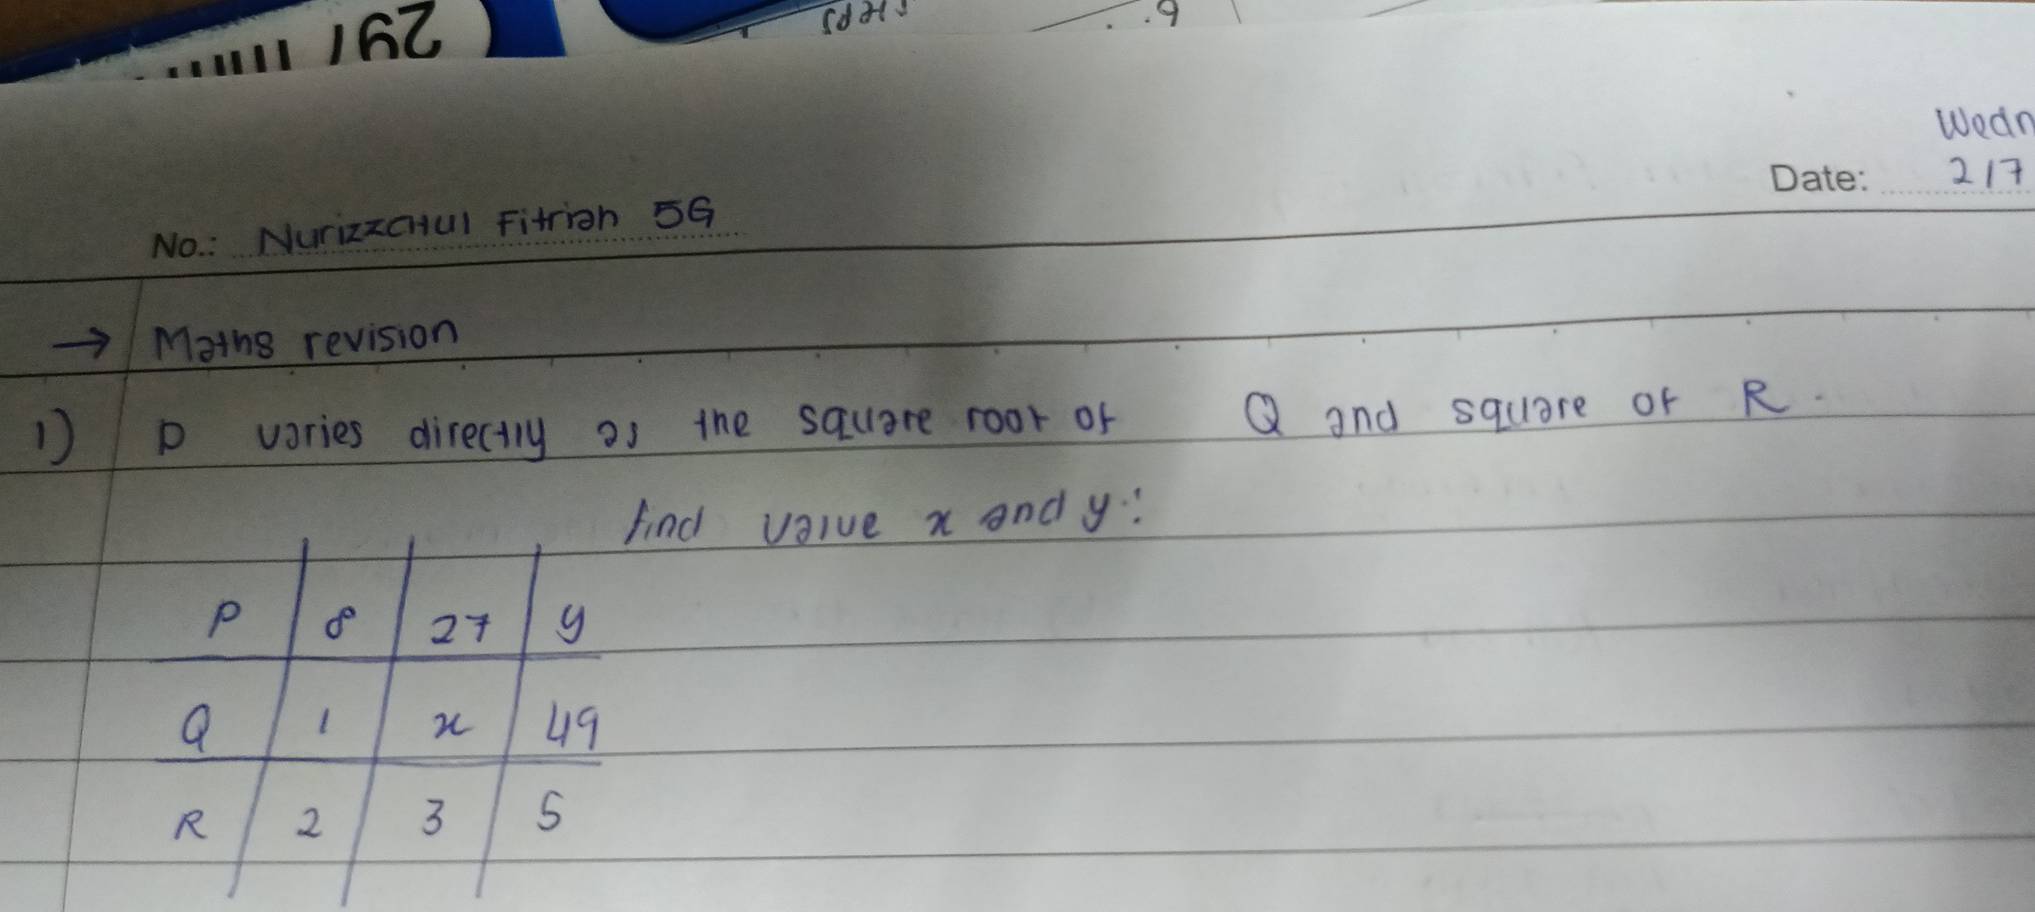 297 mm
steps
6.
Wedn
Date: 217
No.: Nurizzatul Fitriah 5G
→ Maths revision
1) P varies directly as the square root of Q and square of R.
find value x and y:
P 8 27 y
Q 1 x 49
R 2 3 5